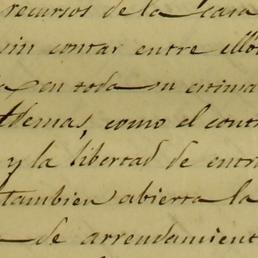 recursos de la casa
sin contar entre ellos
en toda su estima
demas, como el contr
y la libertad de entr
tambien abierta la
de arrendamient